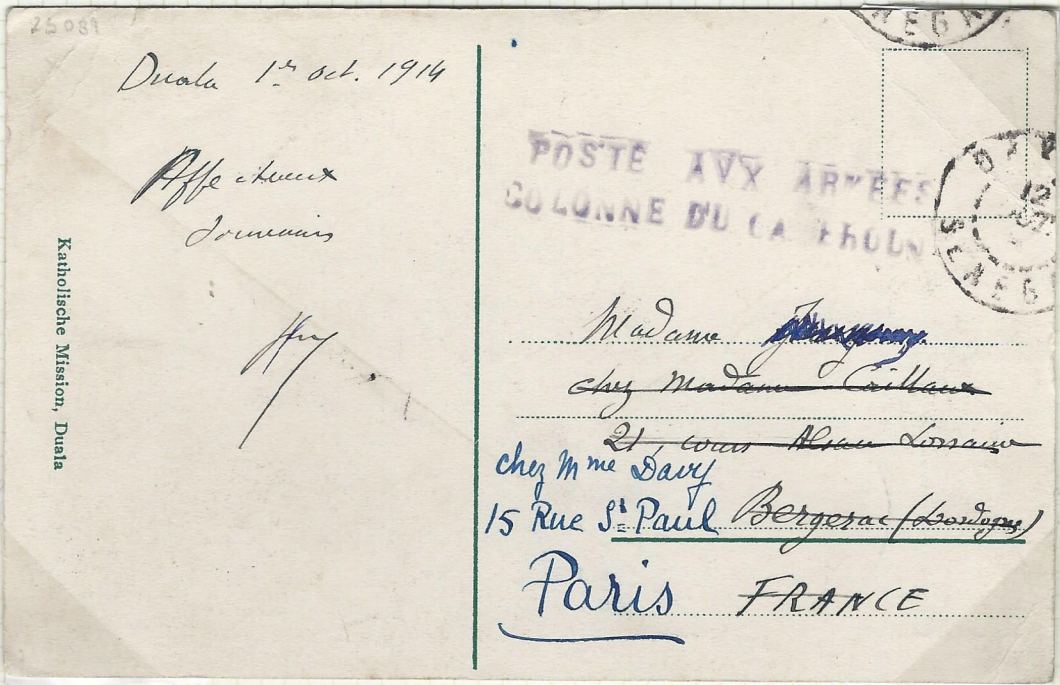 25089
Duala 1er oct. 1914
Affectueux
Souvenirs
Katholische Mission, Duala
POSTE AUX ARMÉES
COLONNE DU CAMEROUN
DA
12
SENEG
Madame
chez Madame Caillaux
21, cours Alsace Lorraine
chez Mme Davy
15 Rue St Paul Bergerac (Dordogne)
Paris FRANCE